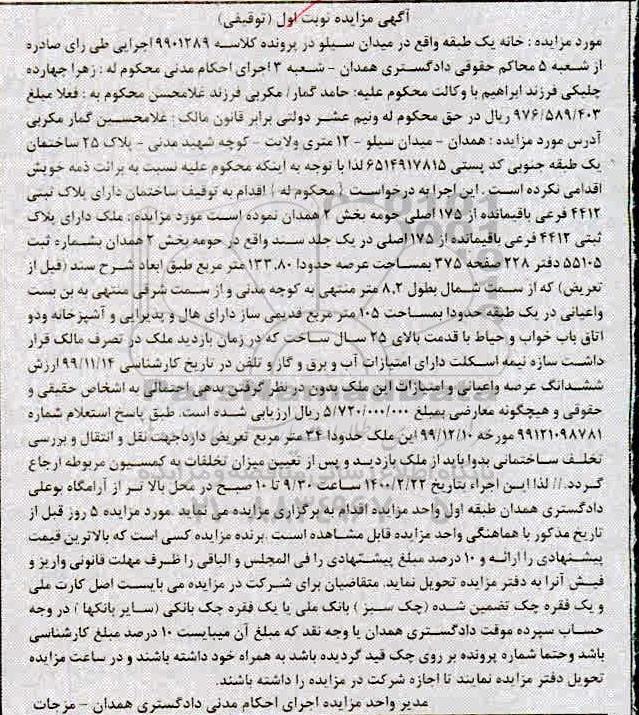 آگهی مزایده نوبت اول (توقیفی)
مورد مزایده : خانه یک طبقه واقع در میدان سیلو در پرونده کلاسه ۹۹۰۱۲۸۹ اجرایی طی رای صادره
از شعبه ۵ محاکم حقوقی دادگستری همدان - شعبه ۳ اجرای احکام مدنی محکوم له : زهرا چهارده
چلیکی فرزند ابراهیم با وکالت محکوم علیه: حامد گمار/ مکربی فرزند غلامحسن محکوم به : فعلا مبلغ
۹۷۶/۵۸۹/۴۰۳ ریال در حق محکوم له ونیم عشر دولتی برابر قانون مالک : غلامحسین گمار مکربی
آدرس مورد مزایده : همدان - میدان سیلو - ۱۲ متری ولایت - کوچه شهید مدنی - پلاک ۲۵ ساختمان
یک طبقه جنوبی کد پستی ۶۵۱۴۹۱۷۸۱۵ لذا با توجه به اینکه محکوم علیه نسبت به برائت ذمه خویش
اقدامی نکرده است . این اجرا به درخواست ( محکوم له ) اقدام به توقیف ساختمان دارای پلاک ثبتی
۴۴۱۲ فرعی باقیمانده از ۱۷۵ اصلی حومه بخش ۲ همدان نموده است مورد مزایده : ملک دارای پلاک
ثبتی ۴۴۱۲ فرعی باقیمانده از ۱۷۵ اصلی در یک جلد سند واقع در حومه بخش ۲ همدان بشماره ثبت
۵۵۱۰۵ دفتر ۲۲۸ صفحه ۳۷۵ بمساحت عرصه حدودا ۱۳۳,۸۰ متر مربع طبق ابعاد شرح سند (قبل از
تعریض) که از سمت شمال بطول ۸,۲ متر منتهی به کوچه مدنی و از سمت شرقی منتهی به بن بست
واعیانی در یک طبقه حدودا بمساحت ۱۰۵ متر مربع قدیمی ساز دارای هال و پذیرایی و آشپزخانه ودو
اتاق باب خواب و حیاط با قدمت بالای ۲۵ سال ساخت که در زمان بازدید ملک در تصرف مالک قرار
داشت سازه نیمه اسکلت دارای امتیازات آب و برق و گاز و تلفن در تاریخ کارشناسی ۹۹/۱۱/۱۴ ارزش
ششدانگ عرصه واعیانی و امتیازات این ملک بدون در نظر گرفتن بدهی احتمالی به اشخاص حقیقی و
حقوقی و هیچگونه معارضی بمبلغ ۵/۷۲۰/۰۰۰/۰۰۰ ریال ارزیابی شده است. طبق پاسخ استعلام شماره
۹۹۱۲۱۰۹۸۷۸۱ مورخه ۹۹/۱۲/۱۰ این ملک حدودا ۳۴ متر مربع تعریض دارد‌جهت نقل و انتقال و بررسی
تخلف ساختمانی بدوا باید از ملک بازدید و پس از تعیین میزان تخلفات به کمسیون مربوطه ارجاع
گردد.// لذا این اجراء بتاریخ ۱۴۰۰/۲/۲۲ ساعت ۹/۳۰ تا ۱۰ صبح در محل بالا تر از آرامگاه بوعلی
دادگستری همدان طبقه اول واحد مزایده اقدام به برگزاری مزایده می نماید .مورد مزایده ۵ روز قبل از
تاریخ مذکور با هماهنگی واحد مزایده قابل مشاهده است .برنده مزایده کسی است که بالاترین قیمت
پیشنهادی را ارائه و ۱۰ درصد مبلغ پیشنهادی را فی المجلس و الباقی را ظرف مهلت قانونی واریز و
فیش آنرا به دفتر مزایده تحویل نماید. متقاضیان برای شرکت در مزایده می بایست اصل کارت ملی
و یک فقره چک تضمین شده (چک سبز ) بانک ملی یا یک فقره چک بانکی (سایر بانکها ) در وجه
حساب سپرده موقت دادگستری همدان یا وجه نقد که مبلغ آن میبایست ۱۰ درصد مبلغ کارشناسی
باشد وحتما شماره پرونده بر روی چک قید گردیده باشد به همراه خود داشته باشند و در ساعت مزایده
تحویل دفتر مزایده نمایند تا اجازه شرکت در مزایده را داشته باشند.
مدیر واحد مزایده اجرای احکام مدنی دادگستری همدان - مزجات